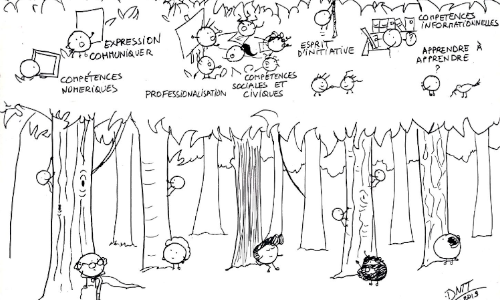 EXPRESSION
COMMUNIQUER
COMPÉTENCES
NUMÉRIQUES
PROFESSIONALISATION
COMPÉTENCES
SOCIALES ET
CIVIQUES
ESPRIT
D'INITIATIVE
COMPÉTENCES
INFORMATIONNELLES
APPRENDRE À
APPRENDRE
?
2013